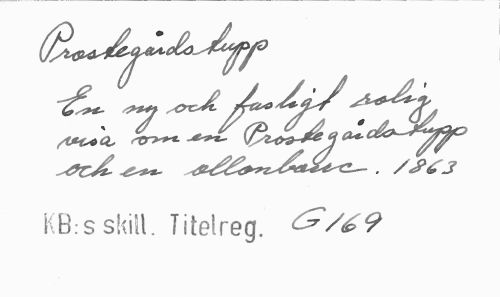 Prostegårdstupp
En ny och fasligt rolig
visa om en Prostegårdstupp
och en ollonbasse. 1863
KB:s skill. Titelreg. G 169